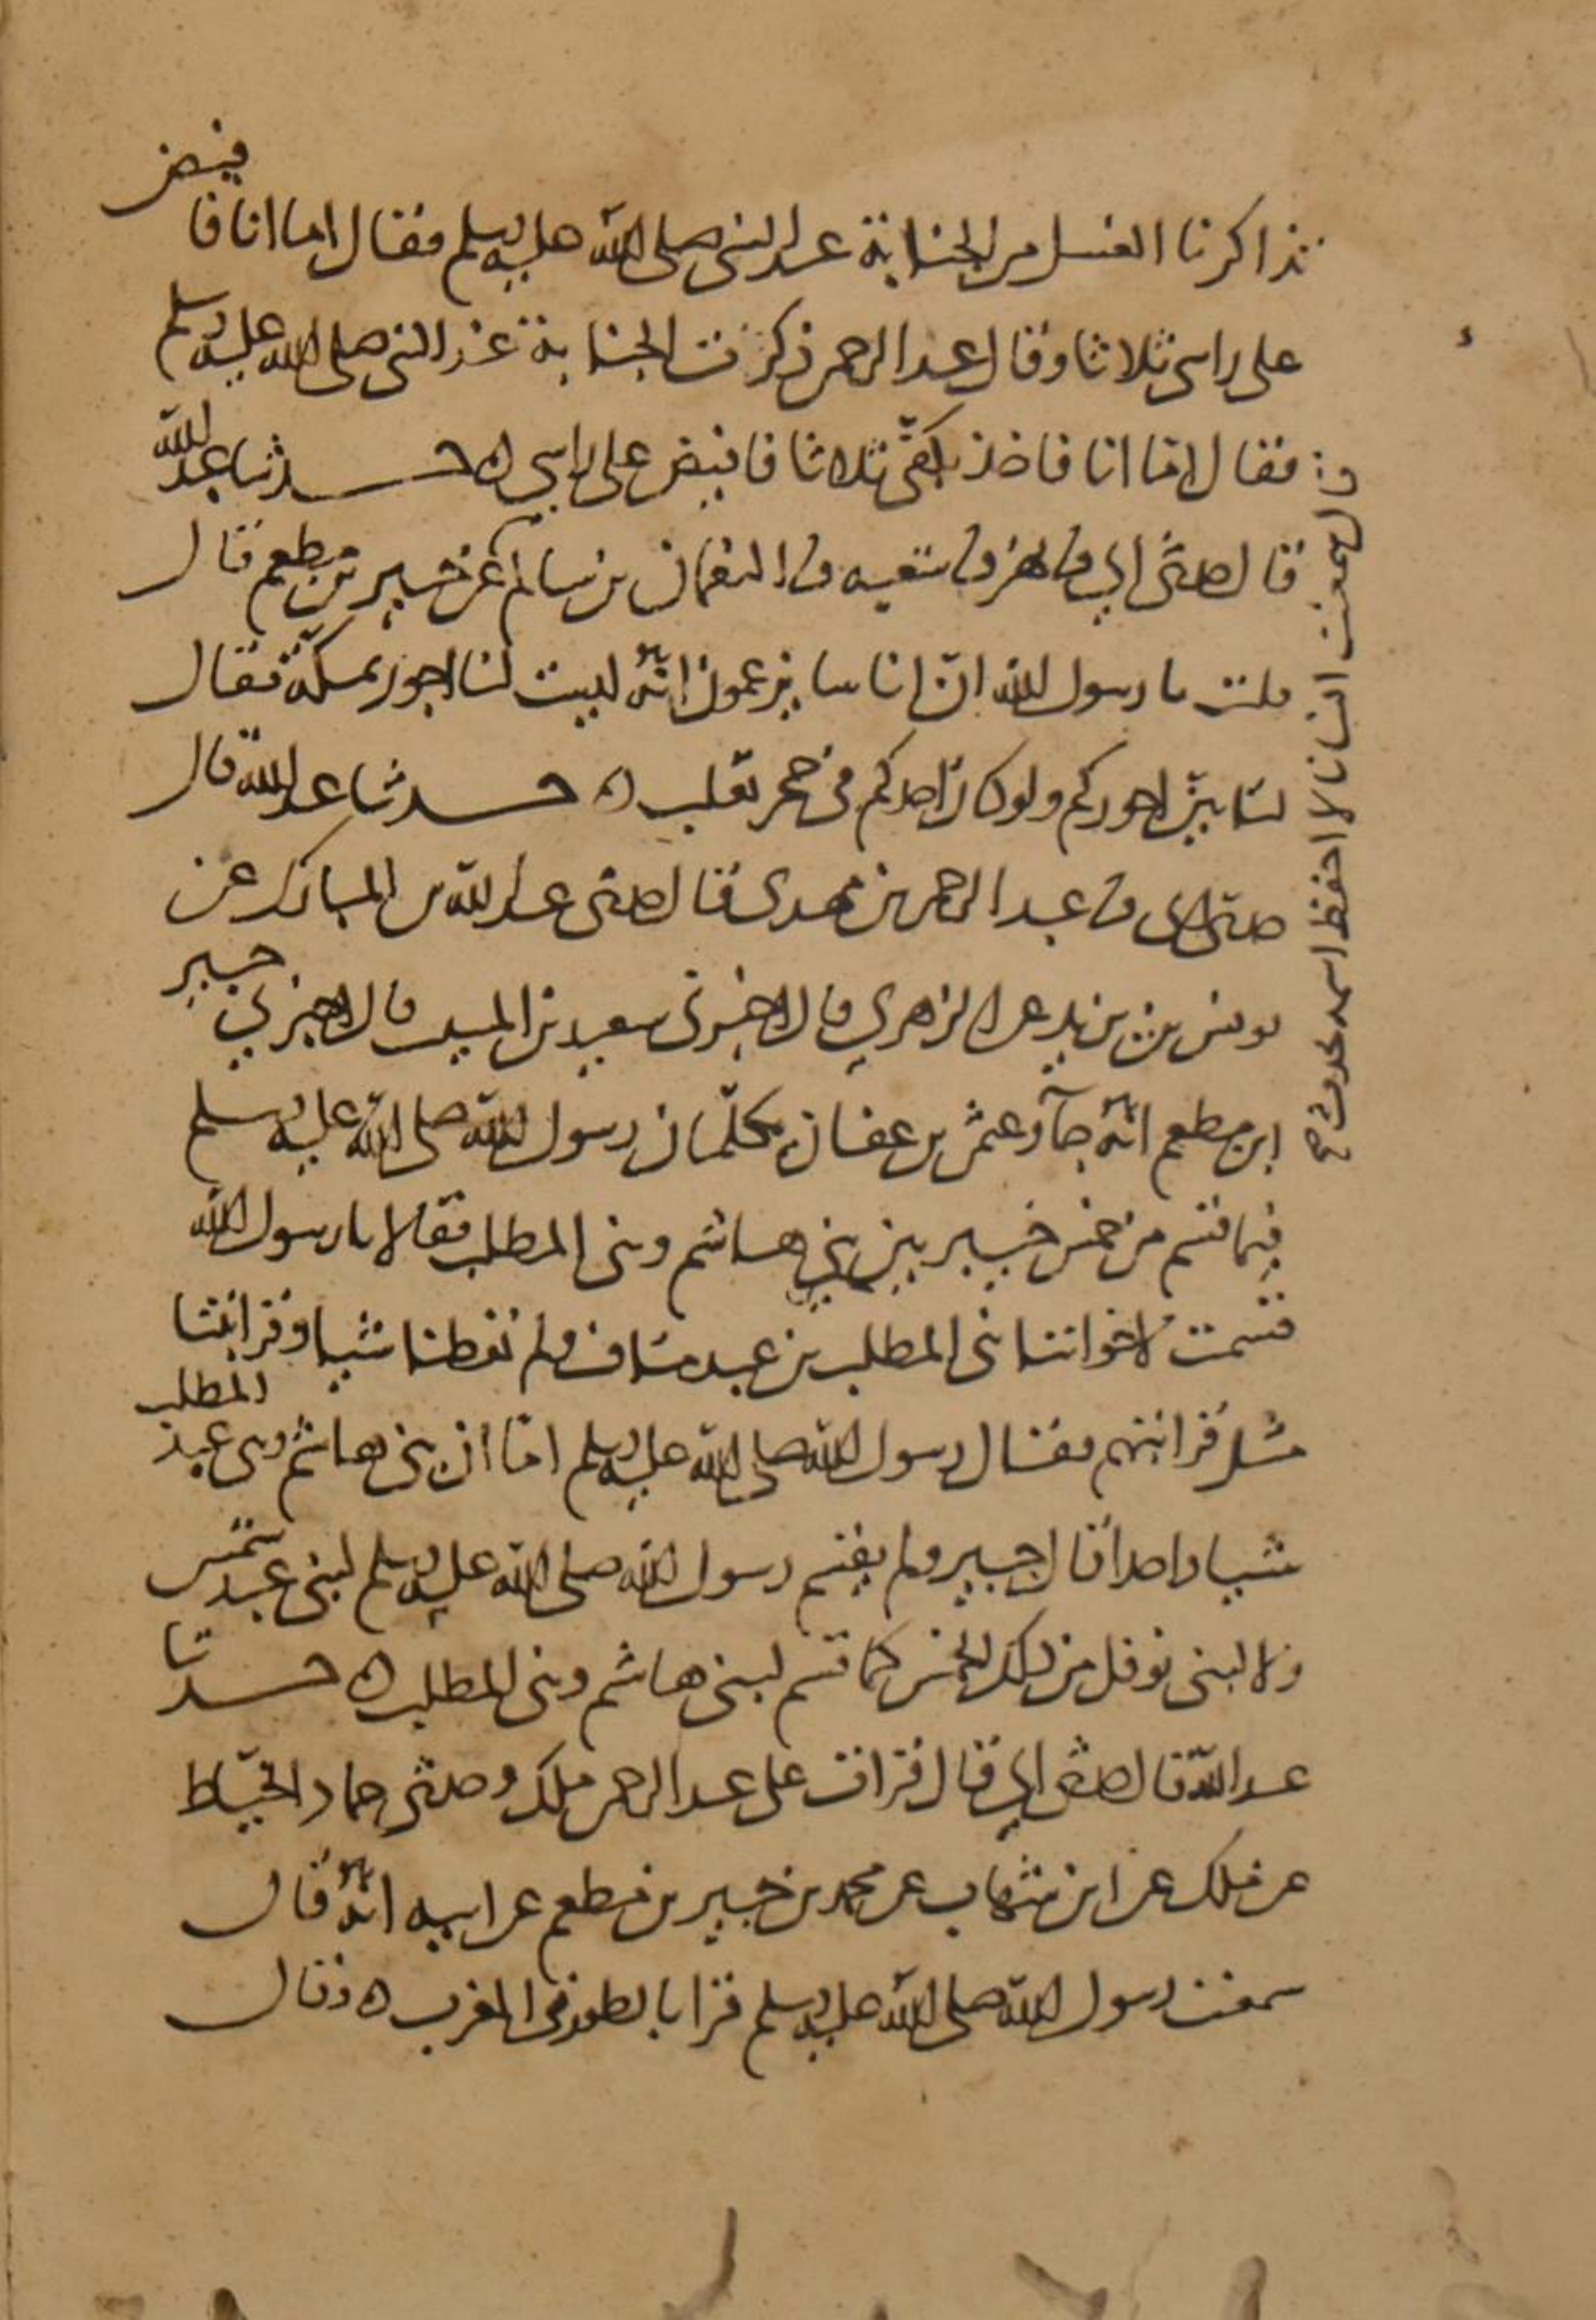 تذاكرنا الغسل من الجنابة عند النبي صلى الله عليه وسلم فقال اما انا فافيض
على راسي ثلاثا وقال عبد الرحمن ذكرت الجنابة عند النبي صلى الله عليه وسلم
فقال اما انا فاخذ بكفي ثلاثا فافيض على راسي ه حدثنا عبد الله
قال حدثني ابي نا بهز نا شعبه نا النعمان بن سالم عن جبير بن مطعم قال
قلت يا رسول الله ان اناسا يزعمون انه ليست لنا اجور بمكة فقال
لتاتينكم اجوركم ولو كان احدكم في جحر ثعلب ه حدثنا عبد الله قال
حدثني ابي نا عبد الرحمن بن مهدى قال حدثني عبد الله بن المبارك عن
يونس بن يزيد عن الزهري قال اخبرني سعيد بن المسيب قال اخبرني جبير
ابن مطعم انه جآ وعثمن بن عفان يكلمان رسول الله صلى الله عليه وسلم
فيما قسم من خمس خيبر بين بني هاشم وبني المطلب فقالا يا رسول الله
قسمت لاخواننا بني المطلب بن عبد مناف ولم تعطنا شيا وقرابتنا
مثل قرابتهم فقال رسول الله صلى الله عليه وسلم انما ان بني هاشم وبني عبد المطلب
شيا واحدا قال جبير ولم يقسم رسول الله صلى الله عليه وسلم لبني عبد شمس
ولا لبني نوفل من ذلك الخمس كما قسم لبني هاشم وبني المطلب ه حدثنا
عبد الله قال حدثني ابي قال قرات على عبد الرحمن ملك وحدثني حماد الخياط
عن ملك عن ابن شهاب عن محمد بن جبير بن مطعم عن ابيه انه قال
سمعت رسول الله صلى الله عليه وسلم قرا بالطور في المغرب ه وقال
قال سمعت انسانا لا احفظ اسمه يحدث